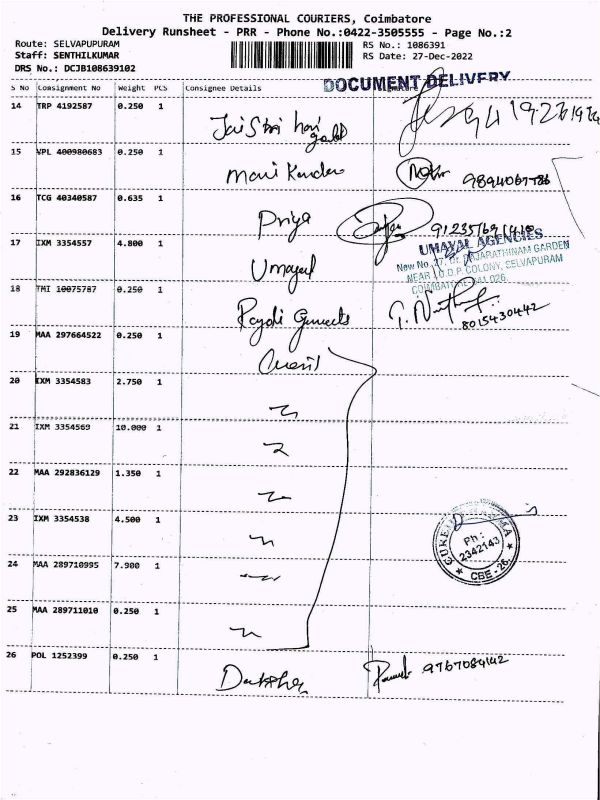 THE PROFESSIONAL COURIERS, Coimbatore
Delivery Runsheet - PRR - Phone No.:0422-3505555 - Page No.:2
Route: SELVAPUPURAM
Staff: SENTHILKUMAR
DRS No.: DCJB108639102
RS No.: 1086391
RS Date: 27-Dec-2022
DOCUMENT DELIVERY
S No Consignment No Weight PCS Consignee Details
14 TRP 4192587 0.250 1
Jai Sri hari gold
15 VPL 400980683 0.250 1
Mani Kandan
16 TCG 40340587 0.635 1
Priya
17 IXM 3354557 4.800 1
Umayal
UMAYAL AGENCIES
New No. 27, Dr. RAJARATHINAM GARDEN
NEAR I.O.P. COLONY, SELVAPURAM
COIMBATORE-641 026.
18 TMI 10075787 0.250 1
8015430442
19 MAA 297664522 0.250 1
20 IXM 3354583 2.750 1
21 IXM 3354569 10.000 1
22 MAA 292836129 1.350 1
23 IXM 3354538 4.500 1
Ph :
2342143
CBE - 26.
24 MAA 289710995 7.900 1
25 MAA 289711010 0.250 1
26 POL 1252399 0.250 1
9767084142